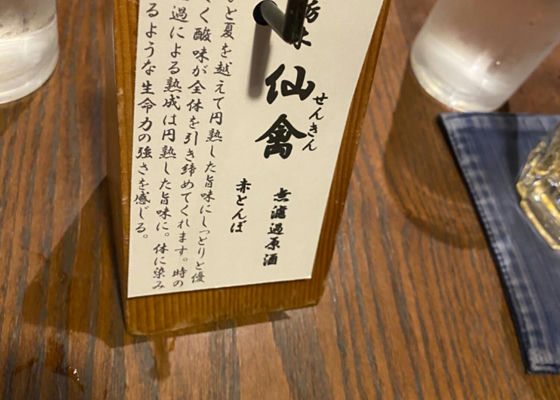 栃木
仙禽
せんきん
無濾過原酒
赤とんぼ
と夏を越えて円熟した旨味にしっとりと優
く酸味が全体を引き締めてくれます。時の
過による熟成は円熟した旨味に。体に染み
るような生命力の強さを感じる。